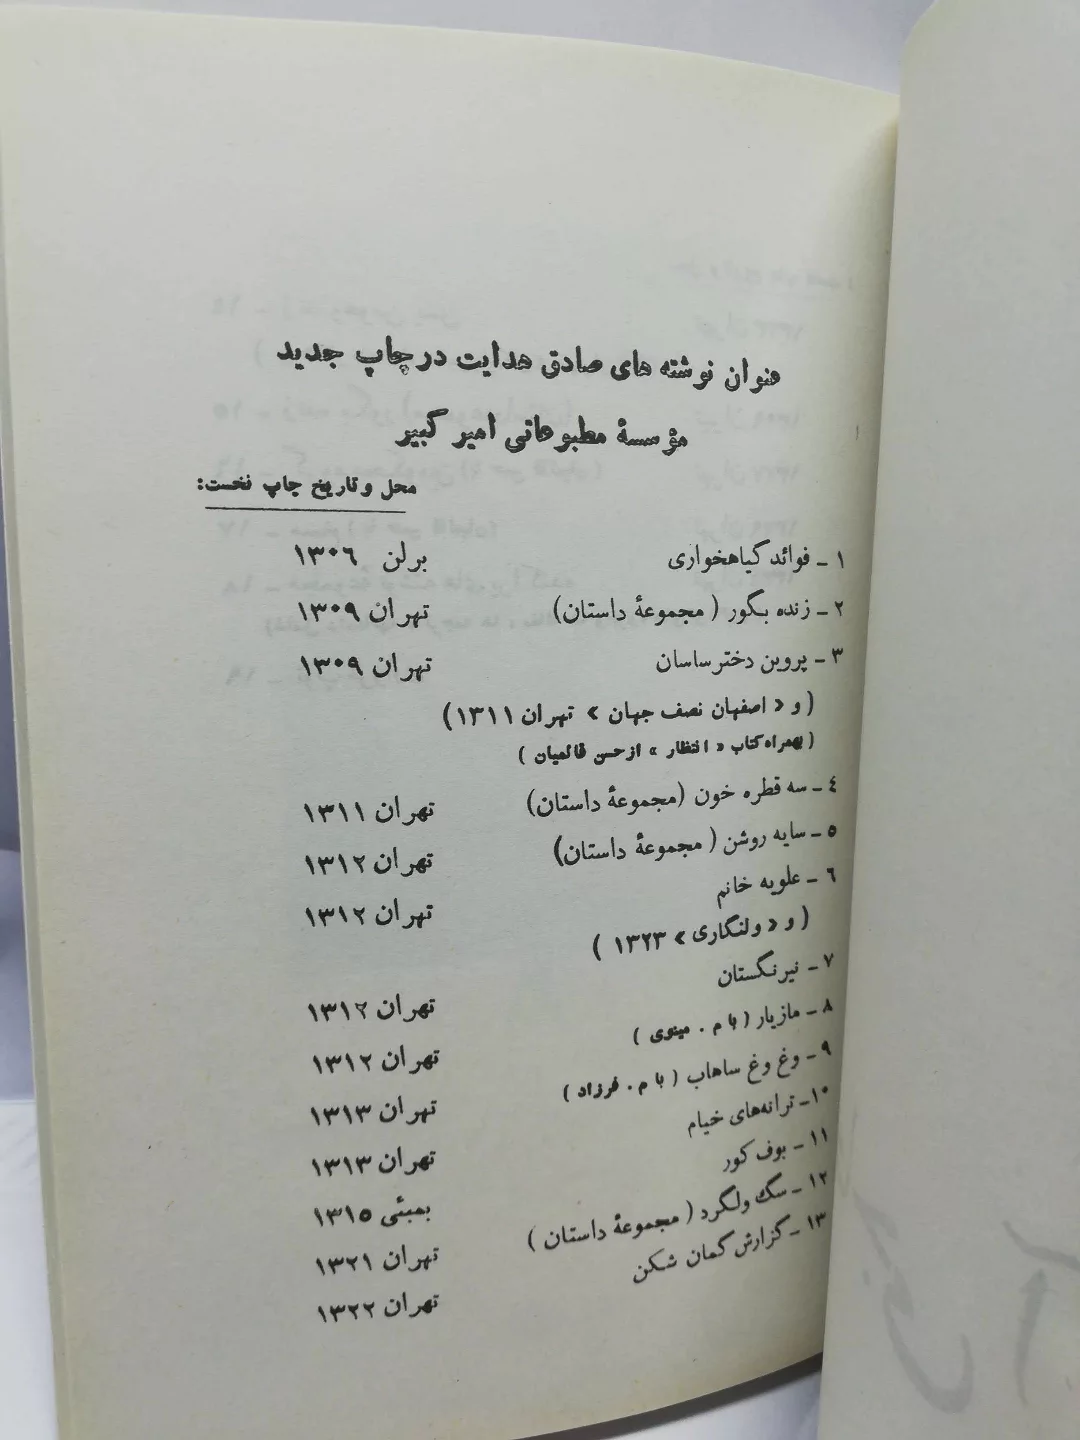 عنوان نوشته های صادق هدایت در چاپ جدید
مؤسسهٔ مطبوعاتی امیر کبیر
محل و تاریخ چاپ نخست:
۱ - فوائد گیاهخواری برلن ۱۳۰۶
۲ - زنده بگور ( مجموعهٔ داستان) تهران ۱۳۰۹
۳ - پروین دختر ساسان تهران ۱۳۰۹
( و « اصفهان نصف جهان » تهران ۱۳۱۱)
( بهمراه کتاب « انتظار » از حسن قائمیان )
۴ - سه قطره خون (مجموعهٔ داستان) تهران ۱۳۱۱
۵ - سایه روشن ( مجموعهٔ داستان) تهران ۱۳۱۲
۶ - علویه خانم تهران ۱۳۱۲
( و « ولنگاری » ۱۳۲۳ )
۷ - نیرنگستان تهران ۱۳۱۲
۸ - مازیار ( با م . مینوی ) تهران ۱۳۱۲
۹ - وغ وغ ساهاب ( با م . فرزاد ) تهران ۱۳۱۳
۱۰ - ترانه‌های خیام تهران ۱۳۱۳
۱۱ - بوف کور بمبئی ۱۳۱۵
۱۲ - سگ ولگرد ( مجموعهٔ داستان ) تهران ۱۳۲۱
۱۳ - گزارش گمان شکن تهران ۱۳۲۲